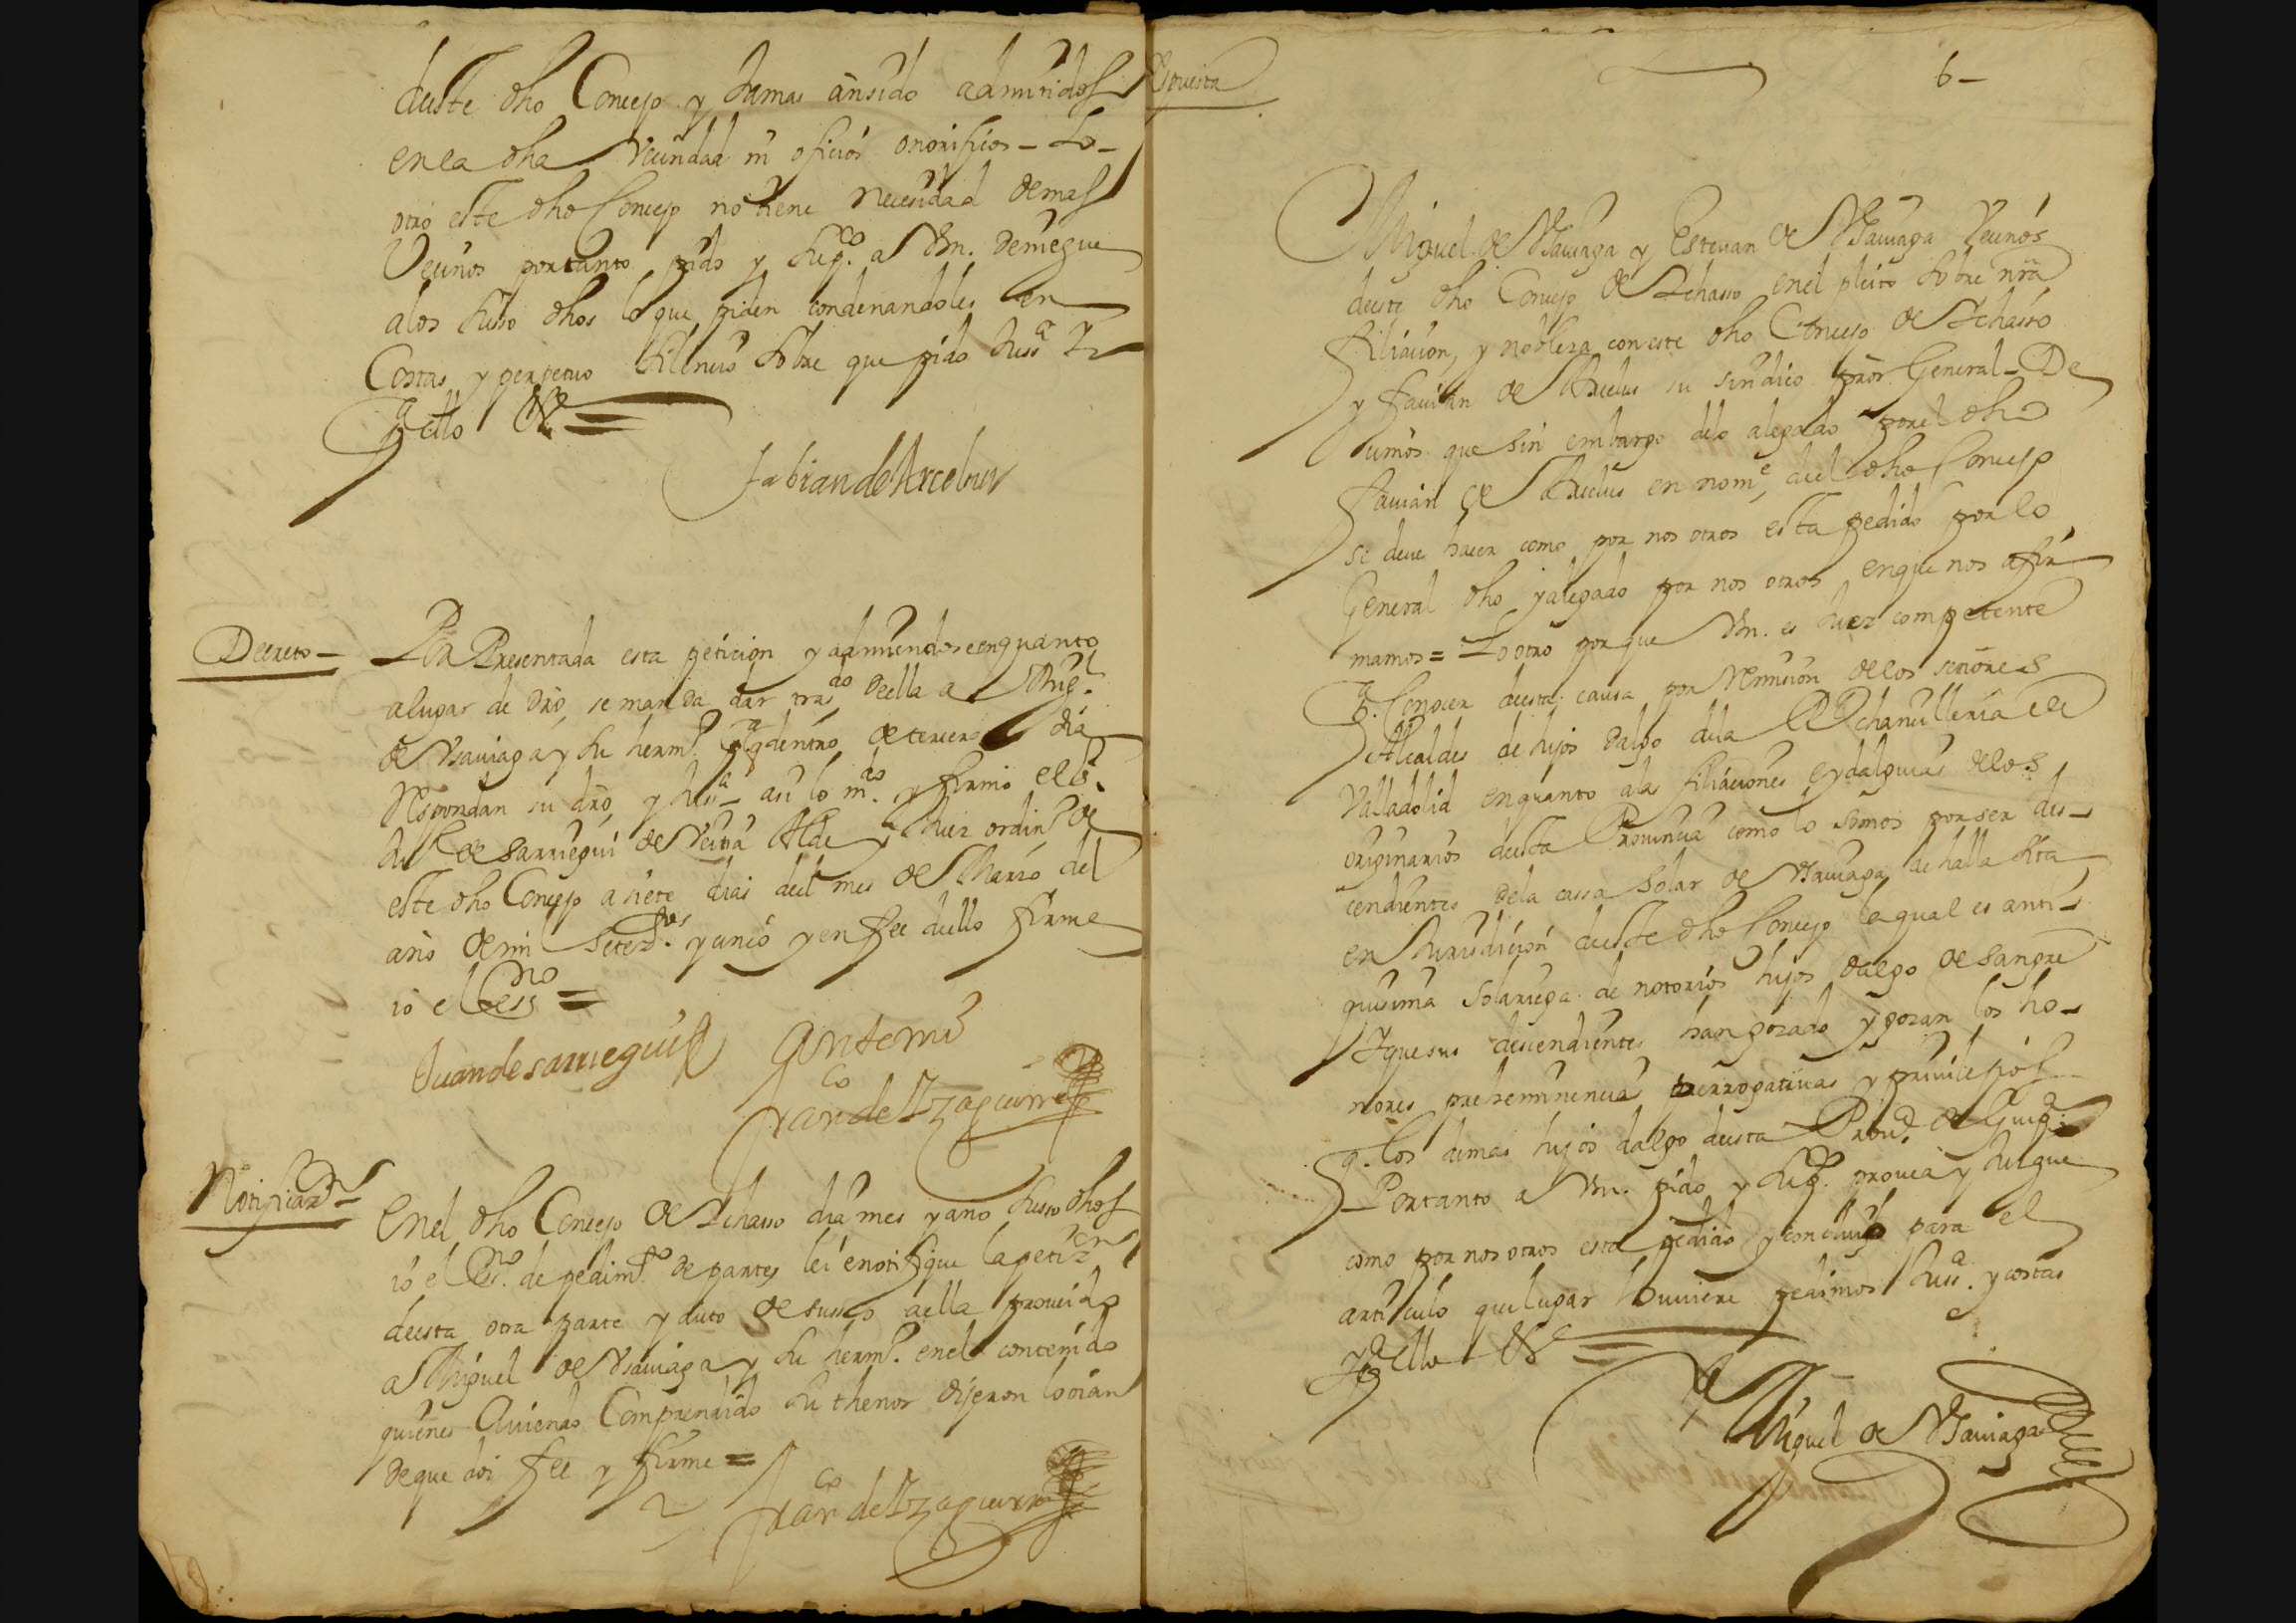 deeste dho Concejo y Jamas ansido admitidos
en la dha Vecindad ni oficios onorificos - Lo -
otro este dho Concejo no tiene necesidad demas
Vecinos portanto pido y Supco. a Vm. Deniegue
alos Susso dhos lo que piden condenandoles en
Costas y perpetuo Silencio Sobre que pido Jussa Y
pa ello &a =
Fabian de Arcelus
Decreto - Por Presentada esta peticion y admitiendose en quanto
alugar de Dro, se manda dar trasdo Deella a Migl.
de Vsauiaga y Su hermo. pa q dentro de tercero dia
Respondan su dro, y Jussa - asi lo mdo. y firmo el Sr.
Jun de Sarriegui de Vecua Alde y Juez ordino de
este dho Concejo a siete dias deel mes de Marzo del
año de mil Setezos. y cinco y en fee deello firme
io el Essno =
Juan de Sarriegui
Ante mi
Franco de Yzaguirre
Notificazn - En el dho Concejo de Ychasso dia mes y año Susso dhos
io el Esno. de pedimto. de partes lei e notifique la petizn
deesta otra parte y auto de susso aella proueido
a Miguel de Vsauiaga y Su hermo. en el contenido
quienes Auiendo Comprendido Su thenor dijeron lo oian
De que doi fee y firme =
Franco de Yzaguirre
6 -
Miguel de Vsauiaga y Esteuan de Vsauiaga Vecinos
deeste dho Concejo de Ychasso en el pleito Sobre nra
filiacion, y nobleza con este dho Concejo de Ychasso
y fauian de Arcelus su sindico pror General - De
cimos que sin embargo delo alegado por el dho
Fauian de Arcelus en nome, deel dho Concejo
se deue hacer como por nos otros esta pedido por lo
General dho y alegado por nos otros en que nos afir
mamos = Lo otro por que Vm. es Juez competente
pa. Conocer deesta causa por Remision de los señores
Alcaldes de hijos Dalgo dela Rl Chancilleria de
Valladolid en quanto alas filiaciones e ydalguias de los
originarios deesta Prouincia como lo Somos por ser des -
cendientes de la cassa Solar de Vsauiaga de halla Sita
en Jurisdicion deeste dho Concejo la qual es anti -
quisima Solariega de notorios hijos dalgo de sangre
Y que sus descendientes han gozado y gozan los ho -
nores prehemimencias prerrogatiuas y priuilejios
q. los demas hijos dalgo deesta Proua. de Guipa.
Portanto a Vm. pido y Supco. prouea y Juzgue
como por nos otros esta pedido y concluigo para el
articulo que lugar huuiere pedimos Jussa. y costas
Y pa Ello &a
Miguel de Vsauiaga